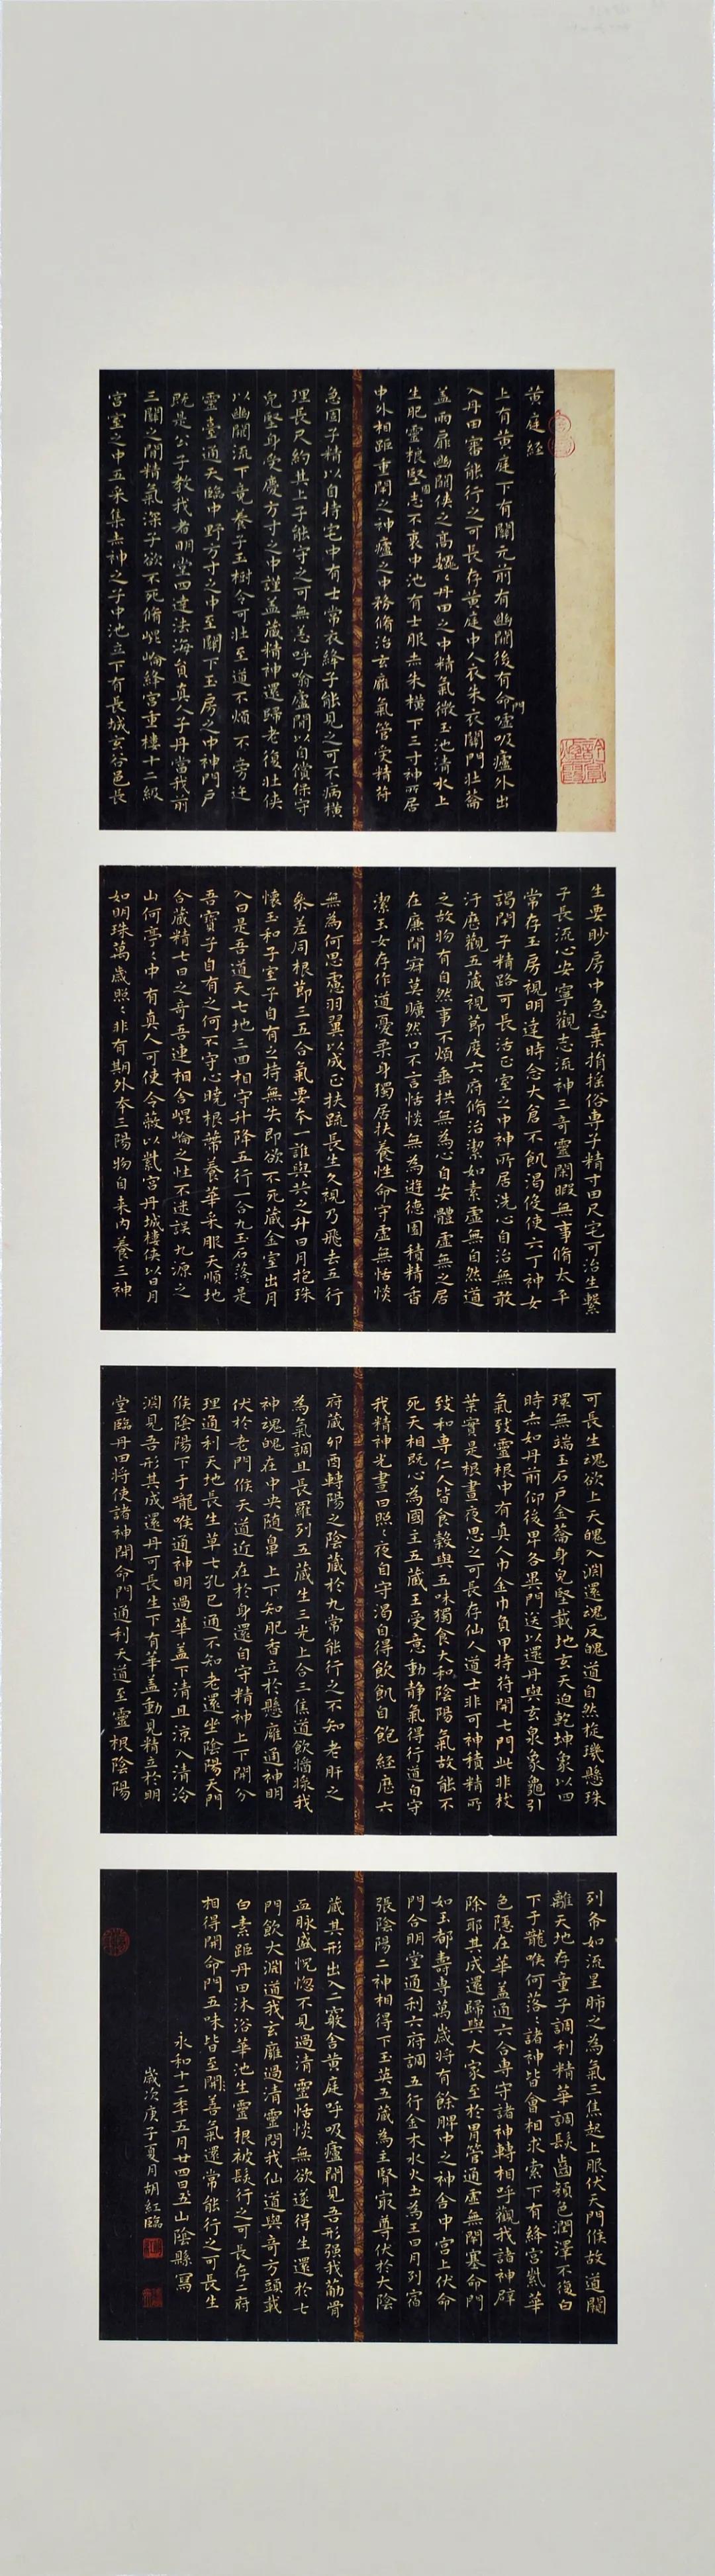 黃庭經
上有黃庭下有關元前有幽闕後有命門噓吸廬外出
入丹田審能行之可長存黃庭中人衣朱衣關門壯蘥
蓋兩扉幽闕俠之高巍〻丹田之中精氣微玉池清水上
生肥靈根堅固志不衰中池有士服赤朱橫下三寸神所居
中外相距重閉之神廬之中務脩治玄廱氣管受精符
急固子精以自持宅中有士常衣絳子能見之可不病橫
理長尺約其上子能守之可無恙呼喻廬間以自償保守
皃堅身受慶方寸之中謹蓋藏精神還歸老復壯俠
以幽闕流下竟養子玉樹令可壯至道不煩不旁迕
靈臺通天臨中野方寸之中至關下玉房之中神門戶
既是公子教我者明堂四達法海員真人子丹當我前
三關之間精氣深子欲不死脩崐崘絳宮重樓十二級
宮室之中五采集赤神之子中池立下有長城玄谷邑長
生要眇房中急棄捐搖俗專子精寸田尺宅可治生繫
子長流心安寧觀志流神三奇靈閑暇無事脩太平
常存玉房視明達時念大倉不飢渴役使六丁神女
謁閉子精路可長活正室之中神所居洗心自治無敢
汙歷觀五藏視節度六府脩治潔如素虛無自然道
之故物有自然事不煩垂拱無為心自安體虛無之居
在廉間寂莫曠然口不言恬惔無為遊德園積精香
潔玉女存作道憂柔身獨居扶養性命守虛無恬惔
無為何思慮羽翼以成正扶疏長生久視乃飛去五行
參差同根節三五合氣要本一誰與共之升日月抱珠
懷玉和子室子自有之持無失即欲不死藏金室出月
入日是吾道天七地三回相守升降五行一合九玉石落〻是
吾寶子自有之何不守心曉根蒂養華采服天順地
合藏精七日之奇吾連相舍崐崘之性不迷誤九源之
山何亭〻中有真人可使令蔽以紫宮丹城樓俠以日月
如明珠萬歲照〻非有期外本三陽物自来內養三神
可長生魂欲上天魄入淵還魂反魄道自然旋璣懸珠
環無端玉石戶金蘥身皃堅載地玄天迫乾坤象以四
時赤如丹前仰後卑各異門送以還丹與玄泉象龜引
氣致靈根中有真人巾金巾負甲持符開七門此非枝
葉實是根晝夜思之可長存仙人道士非可神積精所
致和專仁人皆食穀與五味獨食大和陰陽氣故能不
死天相既心為國主五藏王受意動靜氣得行道自守
我精神光晝日照〻夜自守渴自得飲飢自飽經歷六
府藏卯酉轉陽之陰藏於九常能行之不知老肝之
為氣調且長羅列五藏生三光上合三焦道飲醬漿我
神魂魄在中央隨鼻上下知肥香立於懸廱通神明
伏於老門候天道近在於身還自守精神上下開分
理通利天地長生草七孔已通不知老還坐陰陽天門
候陰陽下于嚨喉通神明過華蓋下清且涼入清泠
淵見吾形其成還丹可長生下有華蓋動見精立於明
堂臨丹田將使諸神開命門通利天道至靈根陰陽
列布如流星肺之為氣三焦起上服伏天門候故道闚
離天地存童子調利精華調髮齒顏色潤澤不復白
下于嚨喉何落〻諸神皆會相求索下有絳宮紫華
色隱在華蓋通六合專守諸神轉相呼觀我諸神辟
除耶其成還歸與大家至於胃管通虛無閉塞命門
如玉都壽專萬歲將有餘脾中之神舍中宮上伏命
門合明堂通利六府調五行金木水火土為王日月列宿
張陰陽二神相得下玉英五藏為主腎寂尊伏於大陰
藏其形出入二竅舍黃庭呼吸廬間見吾形强我筋骨
血脉盛怳惚不見過清靈恬惔無欲遂得生還於七
門飲大淵道我玄廱過清靈問我仙道與奇方頭載
白素距丹田沐浴華池生靈根被髮行之可長存二府
相得開命門五味皆至開善氣還常能行之可長生
永和十二年五月廿四日五山陰縣寫
歲次庚子夏月胡紅臨